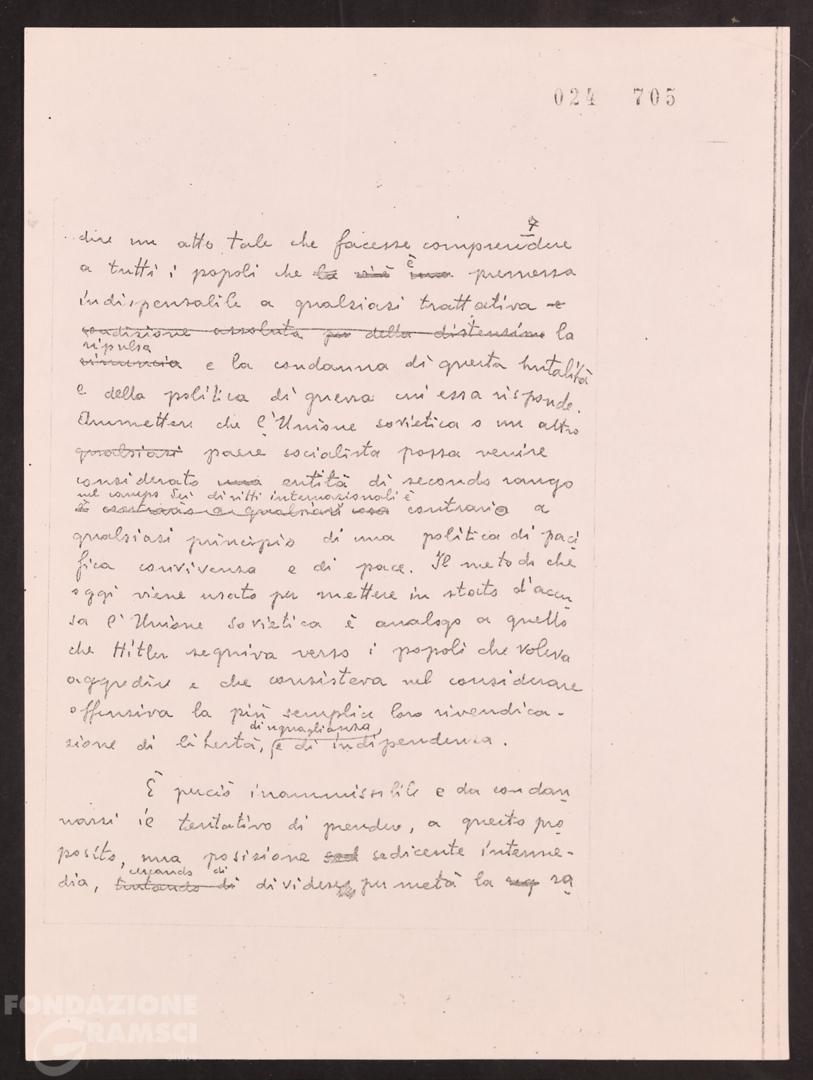 024 705
7
dire un atto tale che facesse comprendere
a tutti i popoli che la è una premessa
indispensabile a qualsiasi trattativa e
condizione assoluta per della distensione la
ripulsa
rinuncia e la condanna di questa brutalità
e della politica di guerra cui essa risponde.
Ammettere che l'Unione sovietica o un altro
qualsiasi paese socialista possa venire
considerato una entità di secondo rango
nel campo dei diritti internazionali è
è contrario a qualsiasi cosa contrario a
qualsiasi principio di una politica di paci
fica convivenza e di pace. Il metodo che
oggi viene usato per mettere in stato d'accu
sa l'Unione Sovietica è analogo a quello
che Hitler seguiva verso i popoli che voleva
aggredire e che consisteva nel considerare
offensiva la più semplice loro rivendica-
di uguaglianza,
zione di libertà, e di indipendenza.
È perciò inammissibile e da condan
narsi il tentativo di prendere, a questo pro
posito, una posizione sedicente interme-
cercando di
dia, tentando di dividere per metà la ra
FONDAZIONE
GRAMSCI